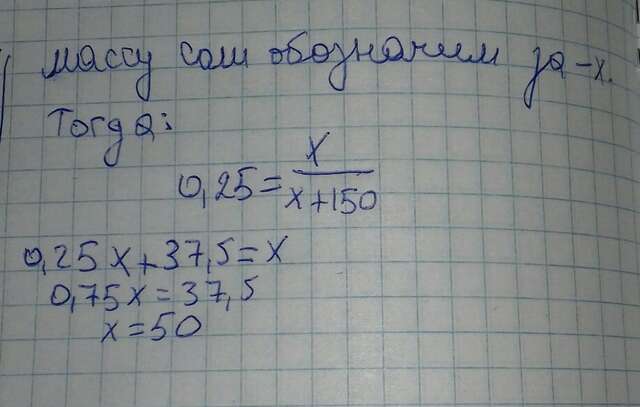 массу соли обозначим за -x.
Тогда:
0,25 = x / x+150
0,25x+37,5=x
0,75x=37,5
x=50